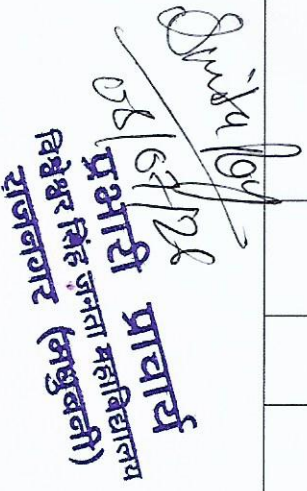 Smita Roy
08/07/26
प्रभारी प्राचार्य
विश्वेश्वर सिंह जनता महाविद्यालय
राजनगर (मधुबनी)